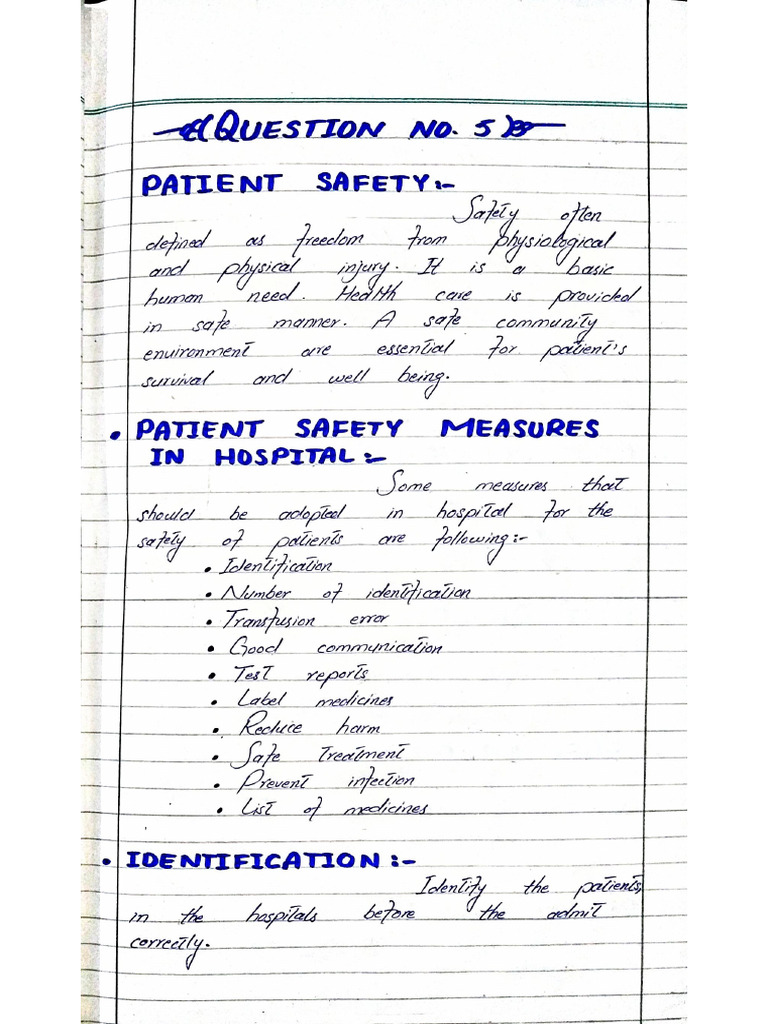 QUESTION NO. 5
PATIENT SAFETY:-
Safety often
defined as freedom from physiological
and physical injury. It is a basic
human need. Health care is provided
in safe manner. A safe community
environment are essential for patient's
survival and well being.
• PATIENT SAFETY MEASURES
IN HOSPITAL:-
Some measures that
should be adopted in hospital for the
safety of patients are following:-
• Identification
• Number of identification
• Transfusion error
• Good communication
• Test reports
• Label medicines
• Reduce harm
• Safe treatment
• Prevent infection
• List of medicines
• IDENTIFICATION:-
Identify the patients
in the hospitals before the admit
correctly.